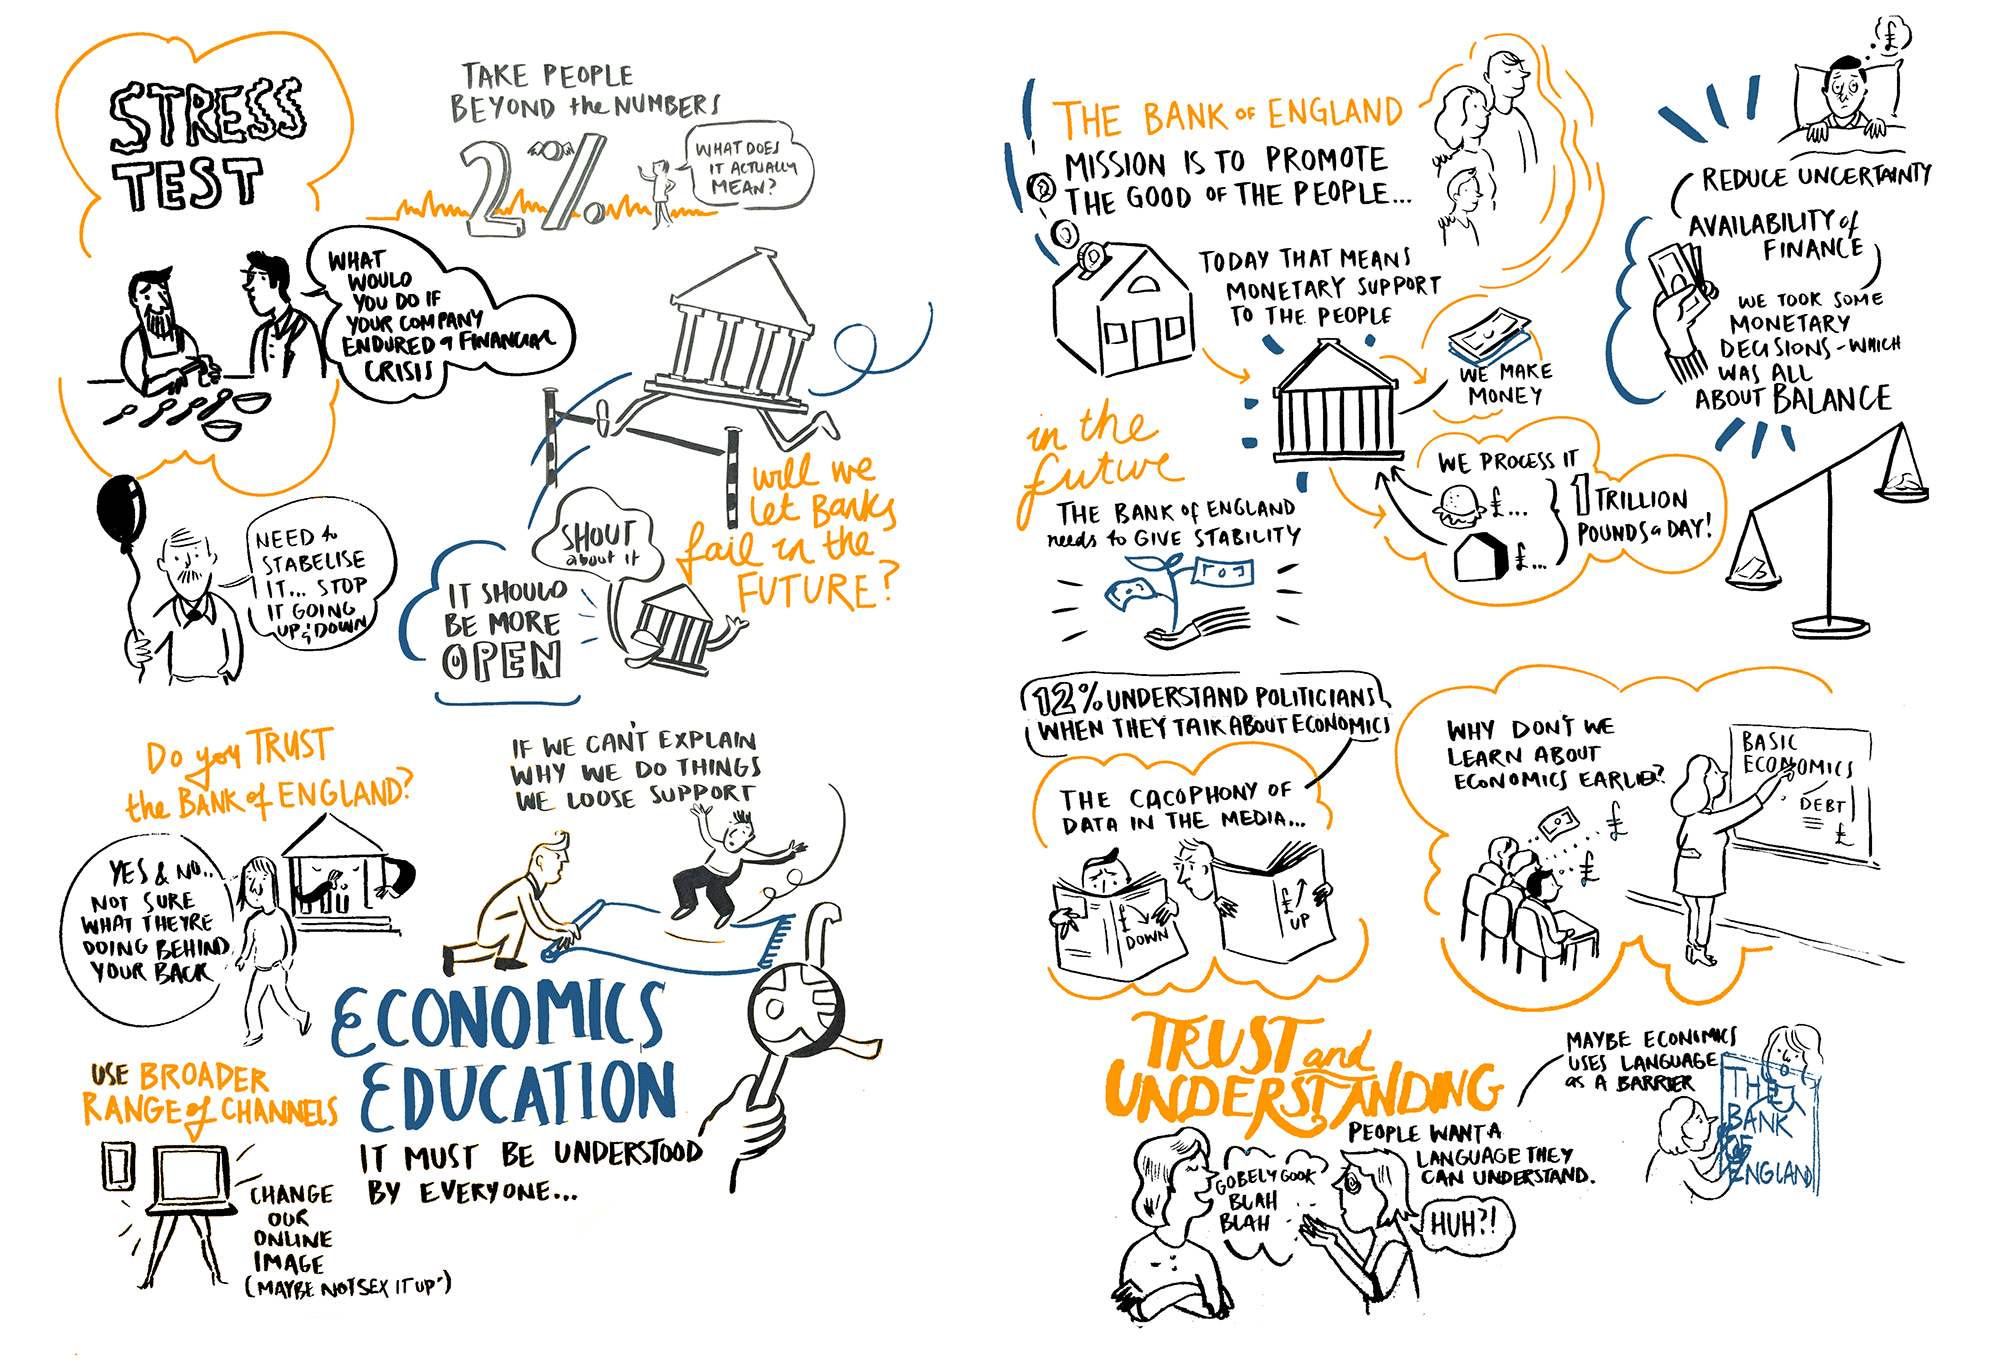 STRESS
TEST
TAKE PEOPLE
BEYOND the NUMBERS
2%
WHAT DOES
IT ACTUALLY
MEAN?
WHAT
WOULD
YOU DO IF
YOUR COMPANY
ENDURED a FINANCIAL
CRISIS
will we
let Banks
fail in the
FUTURE?
NEED to
STABELISE
IT... STOP
IT GOING
UP & DOWN
SHOUT
about it
IT SHOULD
BE MORE
OPEN
Do you TRUST
the BANK of ENGLAND?
YES & NO..
NOT SURE
WHAT THEY'RE
DOING BEHIND
YOUR BACK
IF WE CAN'T EXPLAIN
WHY WE DO THINGS
WE LOOSE SUPPORT
ECONOMICS
EDUCATION
IT MUST BE UNDERSTOOD
BY EVERYONE...
USE BROADER
RANGE of CHANNELS
CHANGE
OUR
ONLINE
IMAGE
(MAYBE NOT SEX IT UP")
THE BANK OF ENGLAND
MISSION IS TO PROMOTE
THE GOOD OF THE PEOPLE...
TODAY THAT MEANS
MONETARY SUPPORT
TO THE PEOPLE
WE MAKE
MONEY
WE PROCESS IT
£...
£...
1 TRILLION
POUNDS a DAY!
in the
future
THE BANK OF ENGLAND
needs to GIVE STABILITY
£
REDUCE UNCERTAINTY
AVAILABILITY of
FINANCE
WE TOOK SOME
MONETARY
DECISIONS - WHICH
WAS ALL
ABOUT BALANCE
12% UNDERSTAND POLITICIANS
WHEN THEY TALK ABOUT ECONOMICS
THE CACOPHONY OF
DATA IN THE MEDIA...
£
DOWN
£
UP
WHY DON'T WE
LEARN ABOUT
ECONOMICS EARLIER?
£
£
BASIC
ECONOMICS
DEBT
£
TRUST and
UNDERSTANDING
PEOPLE WANT A
LANGUAGE THEY
CAN UNDERSTAND.
GOBELYGOOK
BLAH
BLAH
HUH?!
MAYBE ECONOMICS
USES LANGUAGE
as A BARRIER
THE
BANK
OF
ENGLAND